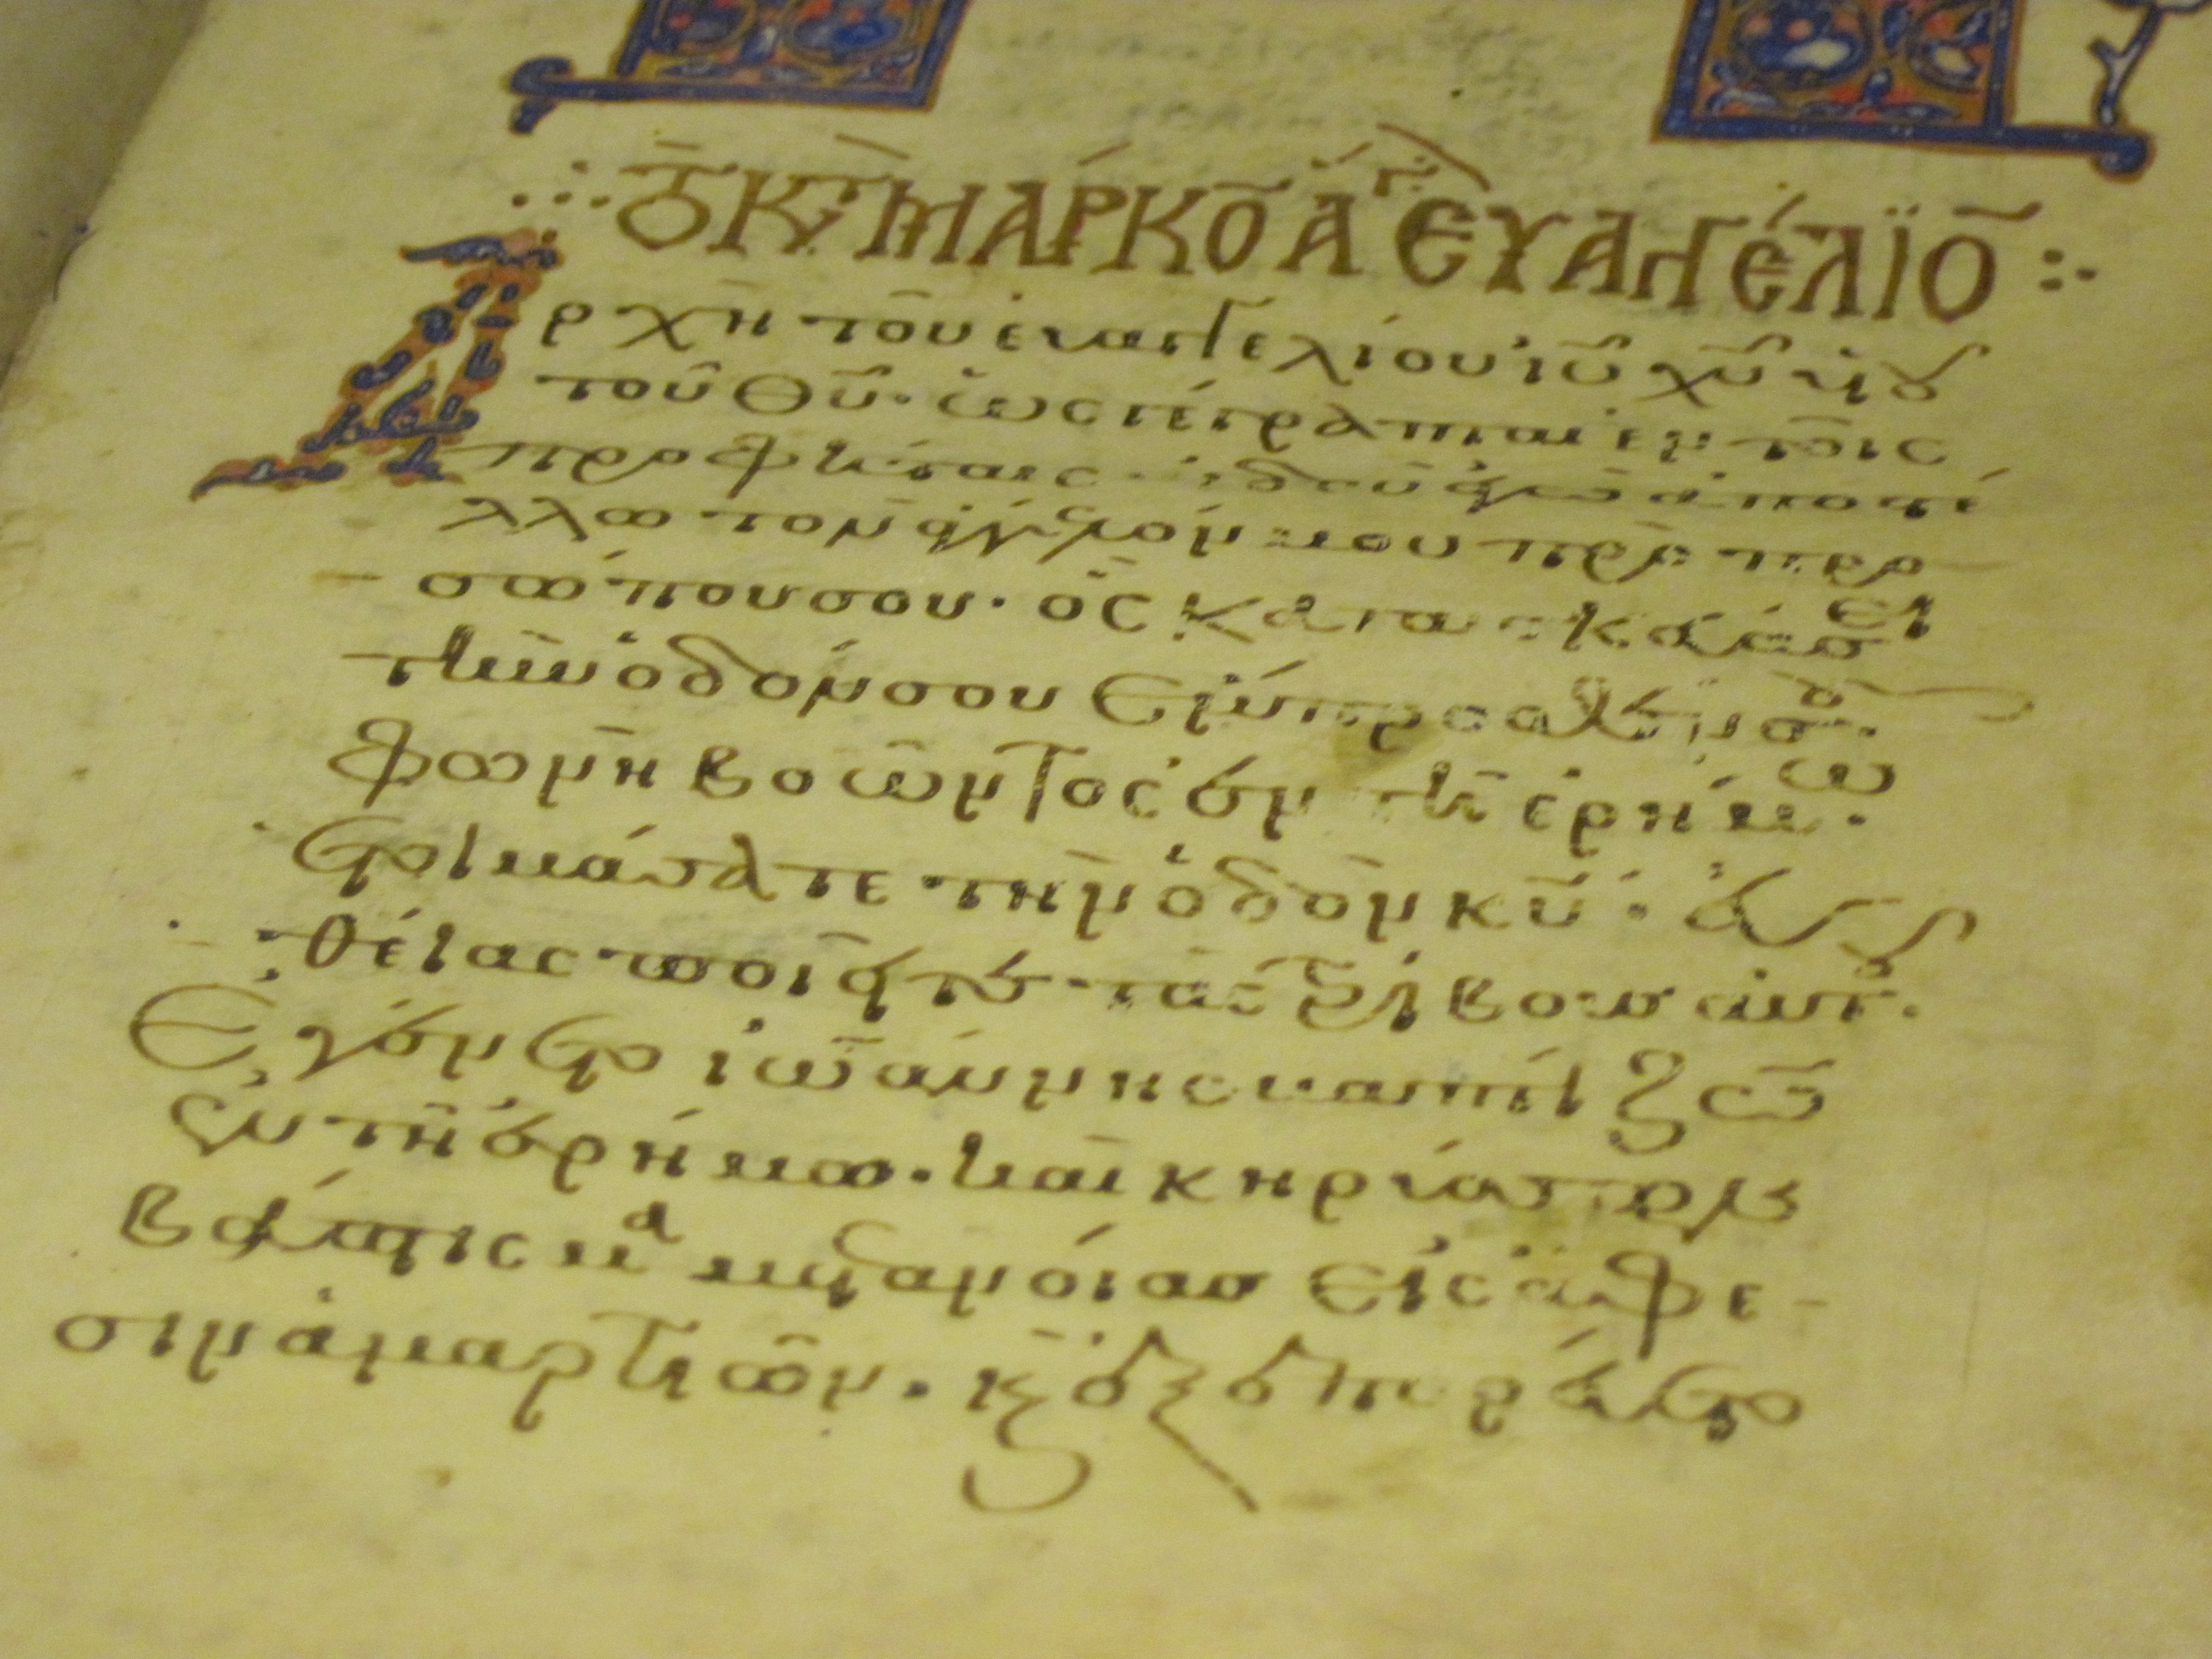 ΤΟ Κ(Τ) ΜΑΡΚΟ̄ ΑΓ ΕΥΑΓΓΕΛΙΟ̄
Ἀρχὴ τοῦ εὐαγγελίου ἰῦ χῦ υἱοῦ
τοῦ θῦ· ὡς γέγραπται ἐν τοῖς
προφήταις· ἰδοὺ ἐγὼ ἀποστέ
λλω τὸν ἄγγελόν μου πρὸ προ
σώπου σου· ὃς κατασκευάσει
τὴν ὁδόν σου ἔμπροσθέν σου·
φωνὴ βοῶντος ἐν τῇ ἐρήμω·
ἑτοιμάσατε τὴν ὁδὸν κῦ· εὐ
θείας ποιεῖτε τὰς τρίβους αὐτοῦ·
Ἐγένετο ἰωάννης βαπτίζω̄
ἐν τῇ ἐρήμω· καὶ κηρύσσων
βάπτισμα μετανοίας εἰς ἄφε-
σιν ἁμαρτιῶν· κ(αὶ) ἐξεπορεύετο